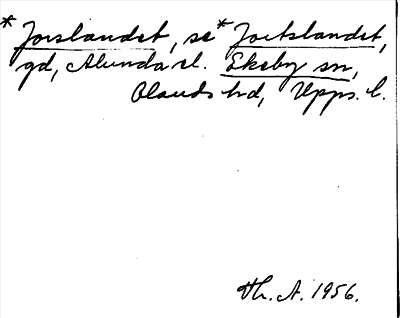 * Jorslandet, se * Jortslandet,
gd, Alunda el. Ekeby sn,
Olands hd, Upps. l.
Th. A. 1956.